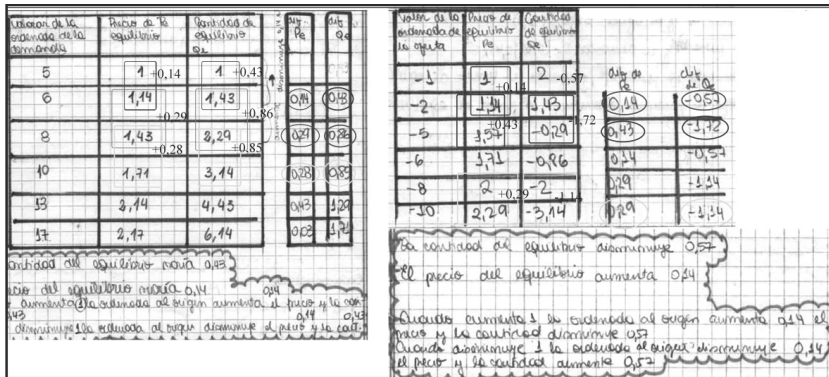 Valores de la ordenada de la demanda
Precio de equilibrio Pe
Cantidad de equilibrio Qe
dif. Pe
dif. Qe
5 1 +0,14 1 +0,43
6 1,14 +0,29 1,43 +0,86 0,14 0,43
8 1,43 +0,28 2,29 +0,85 0,29 0,86
10 1,71 3,14 0,28 0,85
13 2,14 4,43 0,43 1,29
17 2,17 6,14 0,03 1,71
cantidad del equilibrio varía 0,43
ecio del equilibrio varía 0,14
0,14
aumenta 1 la ordenada al origen aumenta el precio y la can-
0,43 0,14 0,43
disminuye 1 la ordenada al origen disminuye el precio y la cant.
Valor de la ordenada de la oferta
Precio de equilibrio Pe
Cantidad de equilibrio Qe
dif de Pe
dif de Qe
-1 1 +0,14 2 -0,57
-2 1,14 +0,43 1,43 -1,72 0,14 -0,57
-5 1,57 -0,29 0,43 -1,72
-6 1,71 -0,86 0,14 -0,57
-8 2 +0,29 -2 -1,14 0,29 -1,14
-10 2,29 -3,14 0,29 -1,14
La cantidad del equilibrio disminuye 0,57
El precio del equilibrio aumenta 0,14
Cuando aumenta 1 la ordenada al origen aumenta 0,14 el
precio y la cantidad disminuye 0,57
Cuando disminuye 1 la ordenada al origen disminuye 0,14
el precio y la cantidad aumenta 0,57